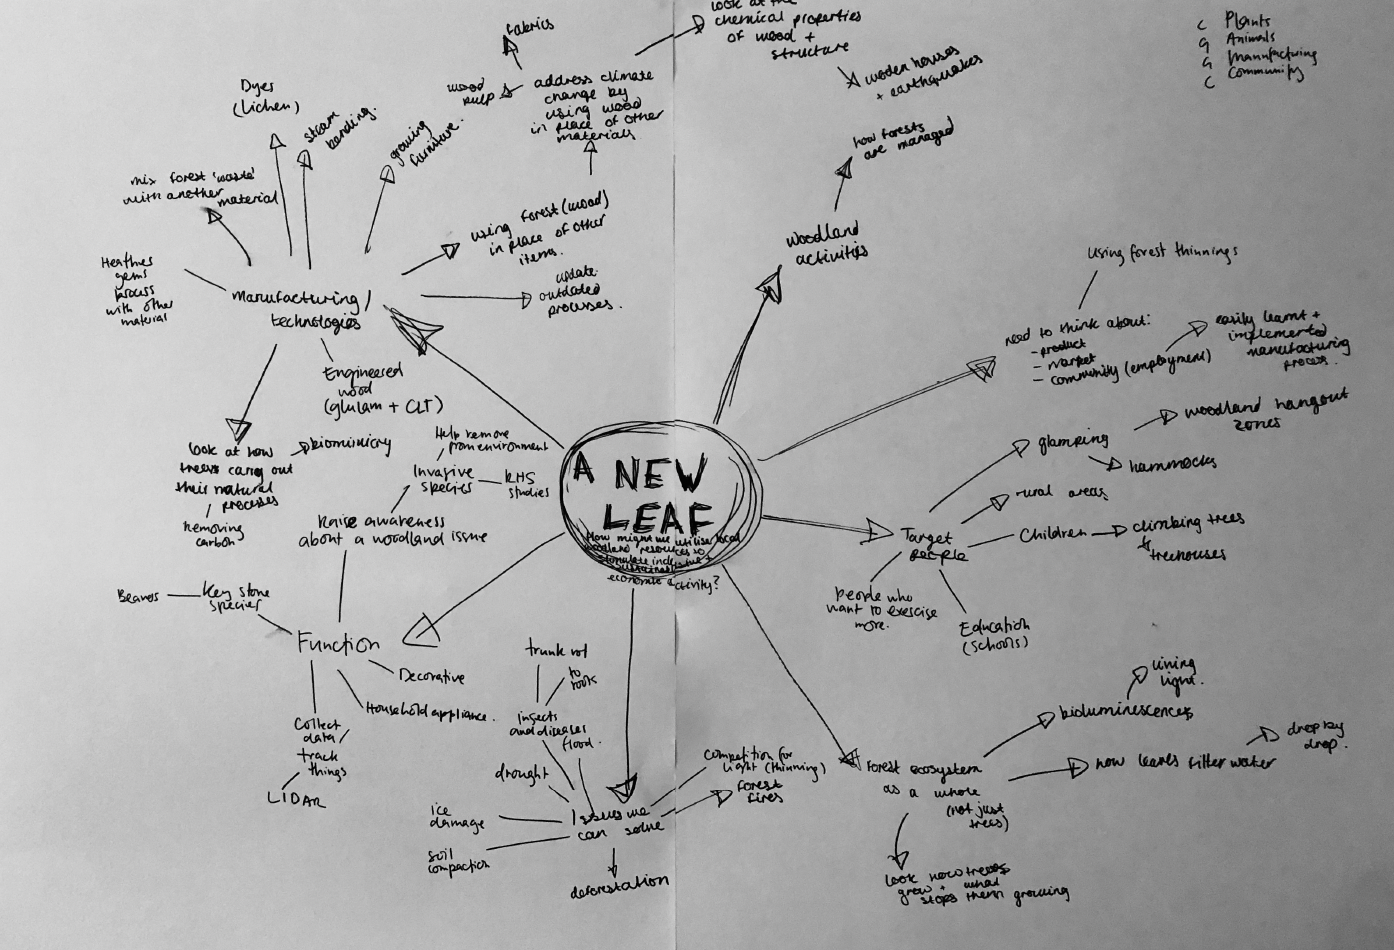 look at the
chemical properties
of wood +
structure
wooden houses
+ earthquakes
C Plants
G Animals
G Manufacturing
C Community
Fabrics
wood
pulp
address climate
change by
using wood
in place of other
materials
Dyes
(Lichen)
steam
bending.
growing
furniture.
how forests
are managed
mix forest 'waste'
with another
material
using forest (wood)
in place of other
items.
woodland
activities
update
outdated
processes.
Heathers
gems
process
with other
material
Manufacturing/
technologies
Engineered
wood
(glulam + CLT)
look at how
trees carry out
their natural
processes
biomimicry
Removing
carbon
Using forest thinnings
need to think about:
- product
- market
- community (employment)
easily learnt +
implemented
manufacturing
process.
Help remove
from environment
Invasive
species
RHS
studies
Raise awareness
about a woodland issue
A NEW
LEAF
How might we utilise local
woodland resources to
stimulate
economic activity?
glamping
woodland hangout
zones
hammocks
rural areas
Target
people
Children
climbing trees
treehouses
People who
want to exercise
more.
Education
(schools)
Beavers
Key stone
species
Function
Decorative
Household appliance.
Collect
data/
track
things
LIDAR
trunk rot
to
root
insects
and diseases
flood.
drought
ice
damage
soil
compaction
Issues we
can solve
competition for
light (thinning)
forest
fires
deforestation
Forest ecosystem
as a whole
(not just
trees)
bioluminescence
living
light.
how leaves filter water
drop by
drop.
look how trees
grow + what
stops them growing